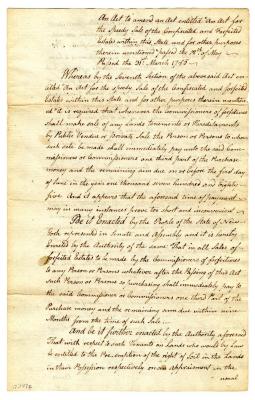 An Act to amend an Act entitled "An Act for
the Speedy Sale of the Confiscated and Forfeited
Estates within this State and for other purposes
therein mentioned" passed the 12th of May
Passed the 31st March 1785
Whereas by the Seventh Section of the abovesaid Act en
titled An Act for the speedy Sale of the Confiscated and forfeited
Estates within this State and for other purposes therein mention
ed "it is required that whenever the Commissioners of forfeitures
shall make sale of any Lands Tenements or Hereditaments
by Public Vendue or Private Sale the Person or Persons to whom
such sale be made shall immediately pay unto the said Com
missioners or Commissioner one third part of the Purchase
money and the remaining sum due on or before the first day
of June in the year one thousand seven hundred and Eighty
five And it appears that the aforesaid time of payment
may in many instances prove too short and inconvenient
Be it Enacted by the People of the State of New
York represented in Senate and Assembly and it is hereby
Enacted by the Authority of the same That in all Sales of
forfeited Estates to be made by the Commissioners of forfeitures
to any Person or Persons whatsoever after the Passing of this Act
such Person or Persons so purchasing shall immediately pay to
the said Commissioner or Commissioners one third Part of the
Purchase money and the remaining sum due within nine
Months from the time of such Sale
And be it further enacted by the Authority aforesaid
That with respect to such Tenants on Lands who would by Law
be entitled to the Preemption of the right of Soil in the Lands
in their Possession respectively on appraisment in the
usual